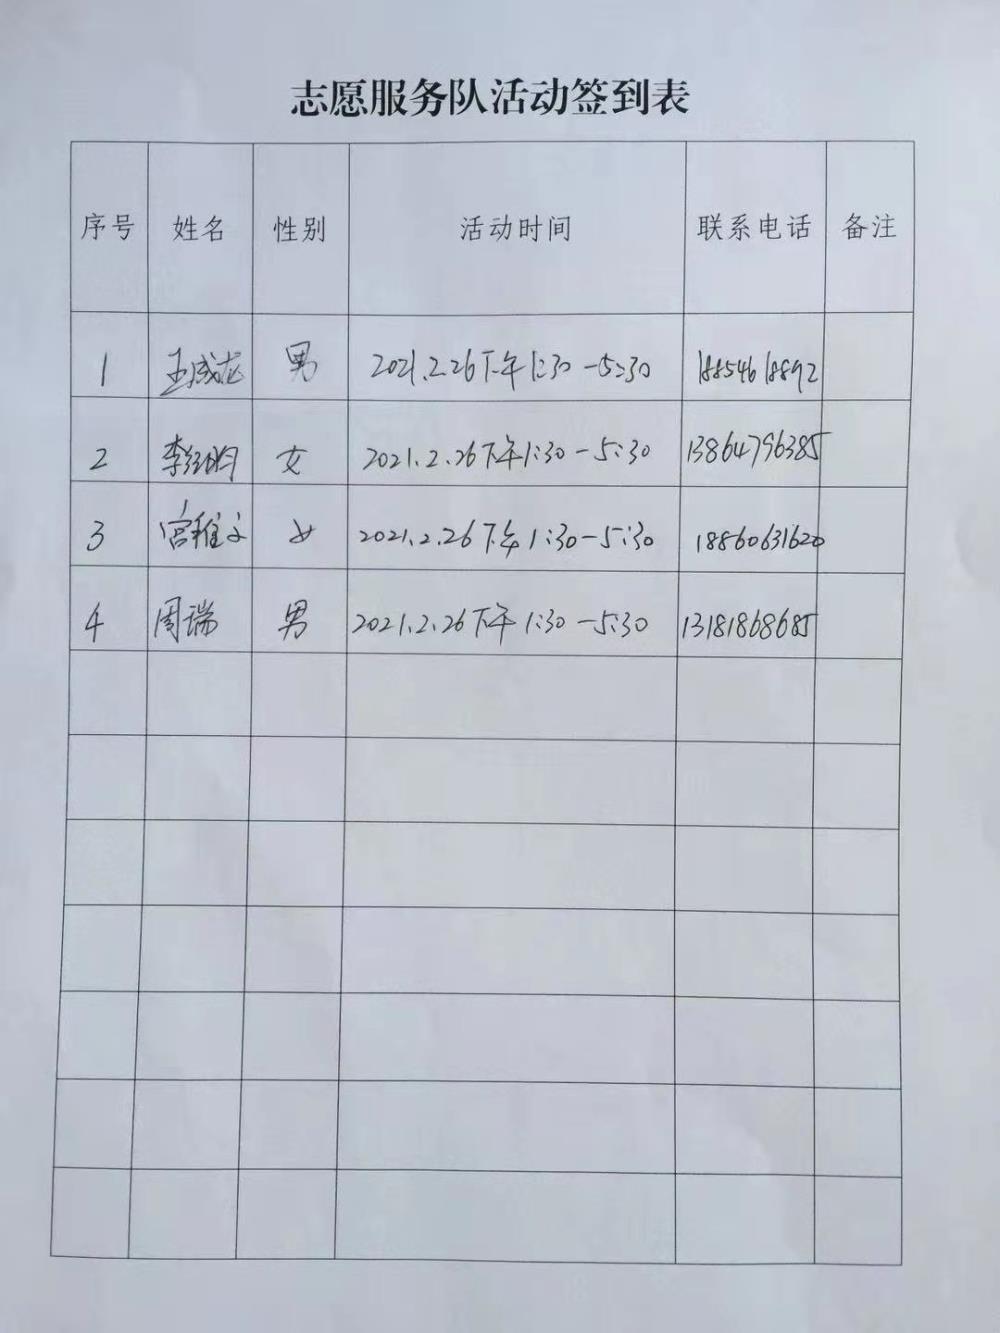 志愿服务队活动签到表
序号 姓名 性别 活动时间 联系电话 备注
1 王成龙 男 2021.2.26下午1:30-5:30 18854618892
2 女 2021.2.26下午1:30-5:30 13864796385
3 宫雅文 女 2021.2.26下午1:30-5:30 18860631620
4 周瑞 男 2021.2.26下午1:30-5:30 13181868685